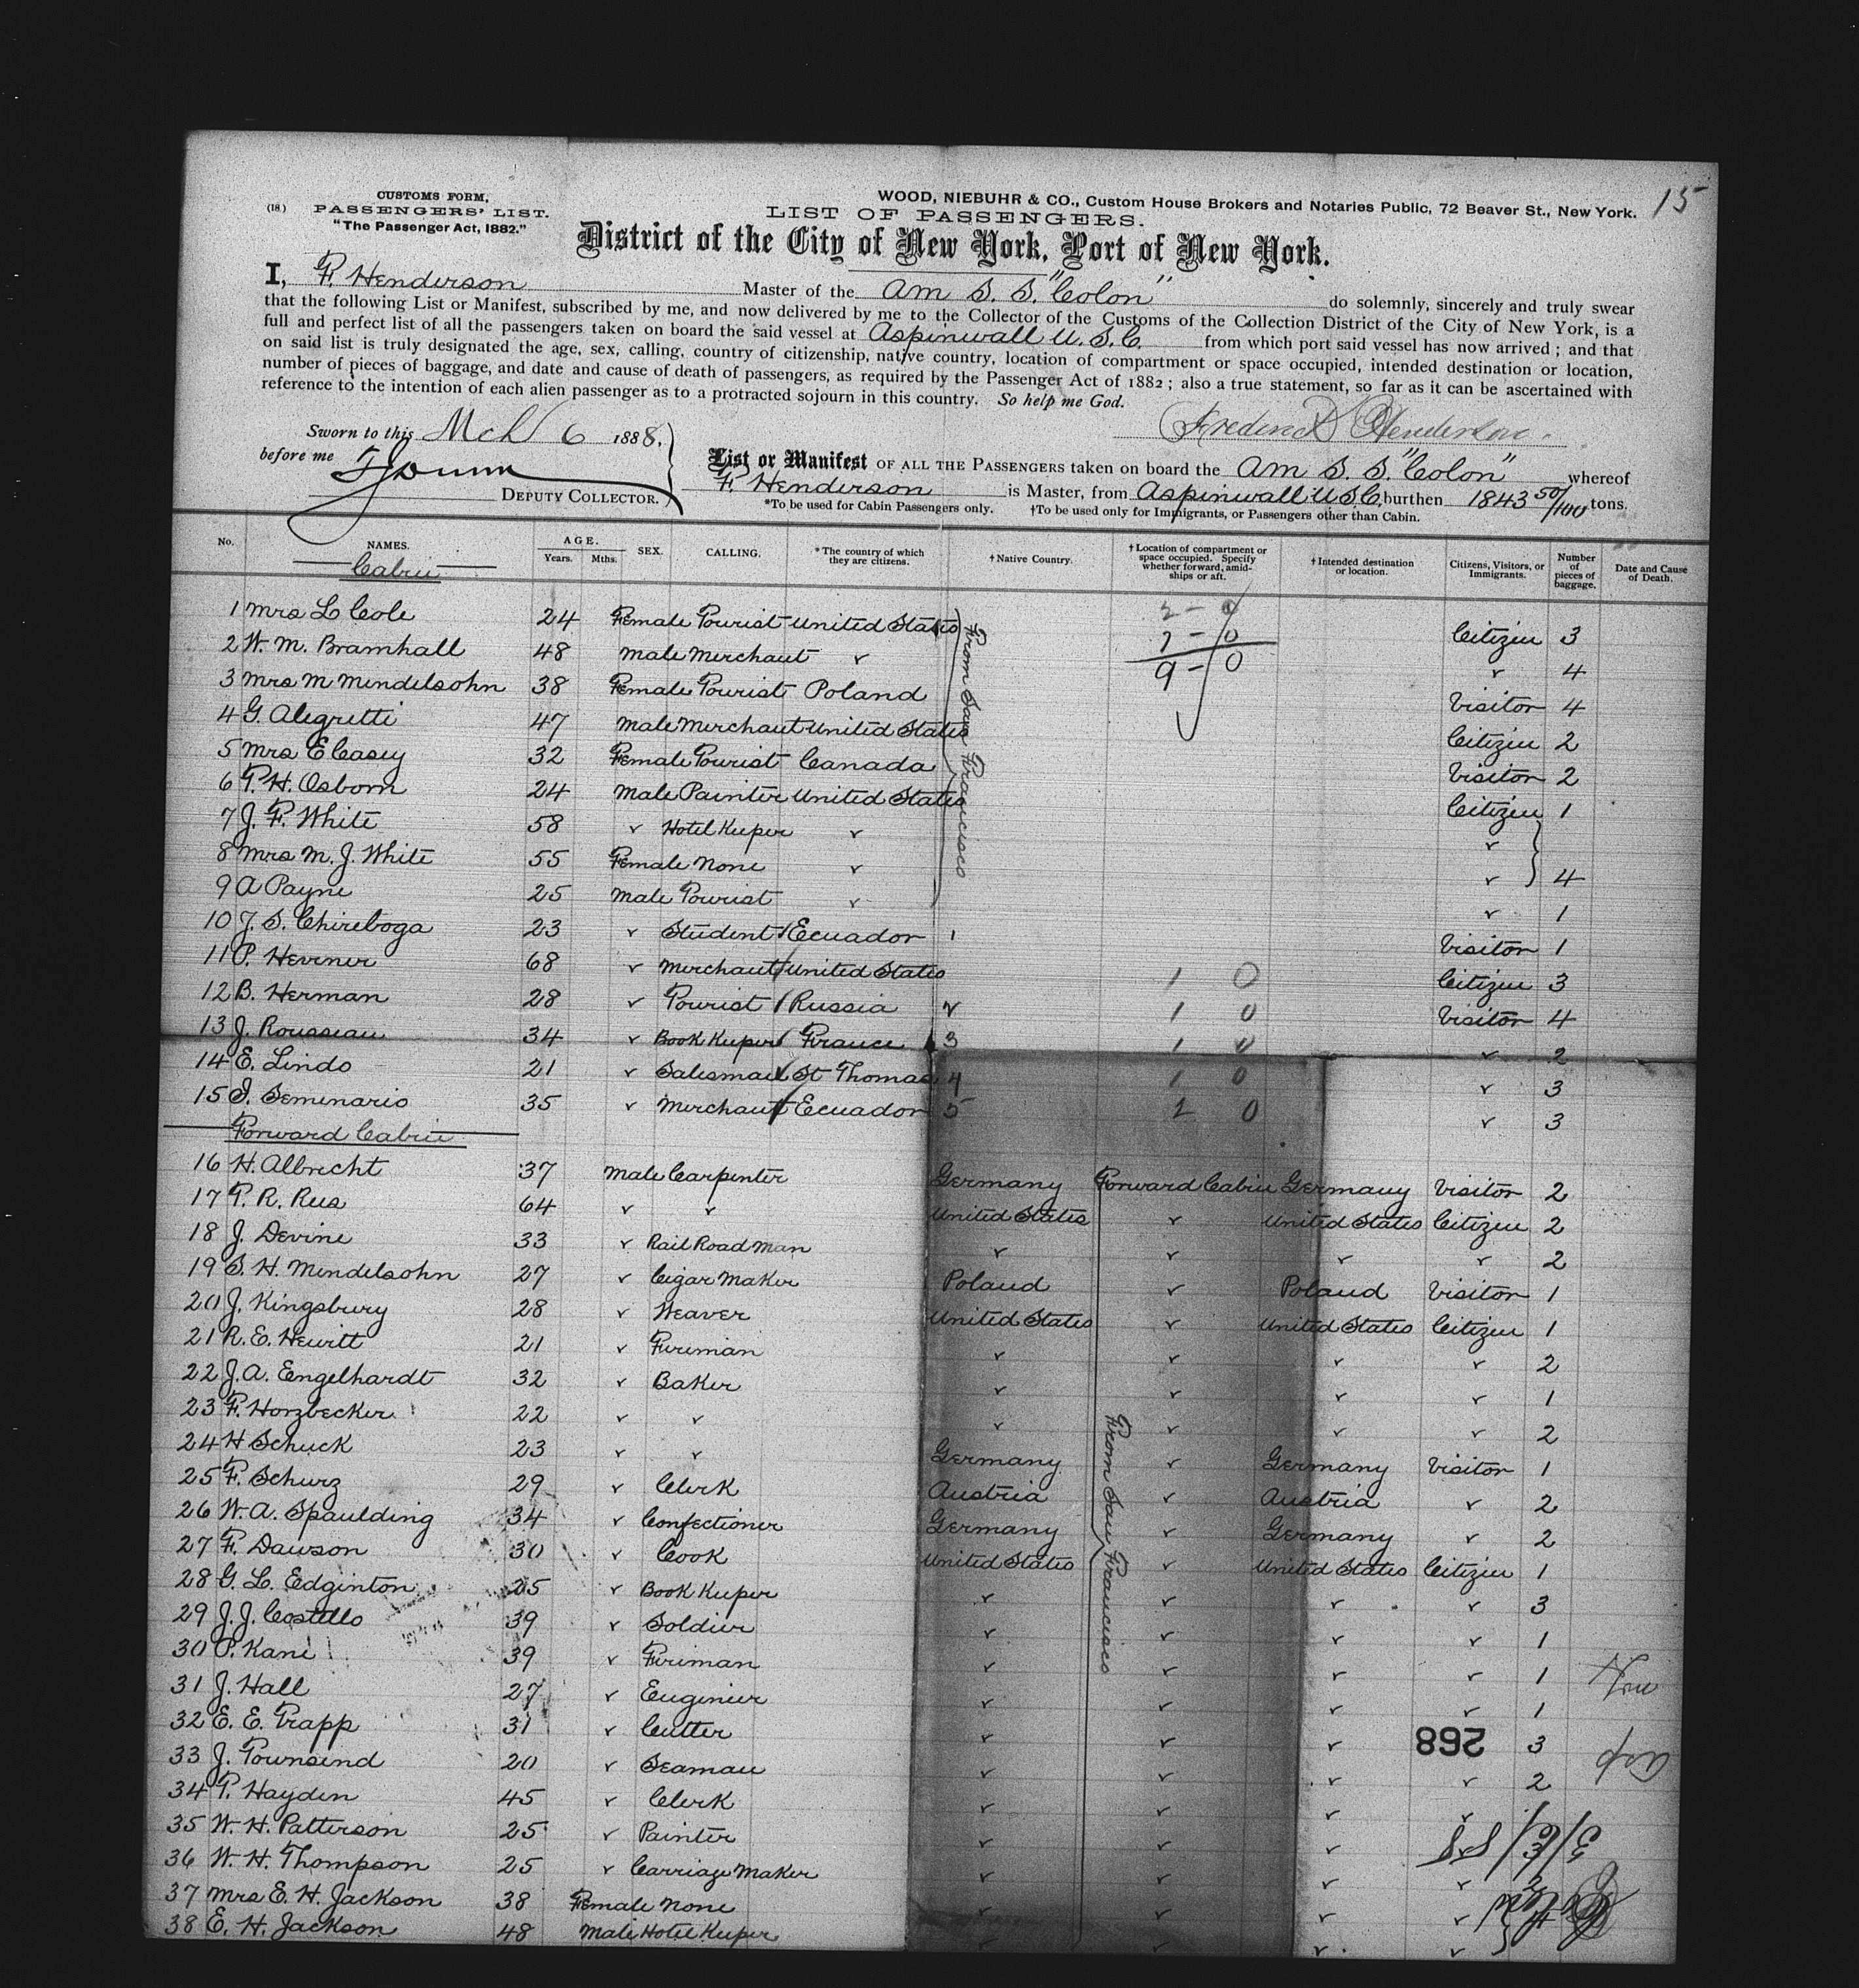 15
CUSTOMS FORM,
(18.) PASSENGERS' LIST.
"The Passenger Act, 1882."
WOOD, NIEBUHR & CO., Custom House Brokers and Notaries Public, 72 Beaver St., New York.
LIST OF PASSENGERS.
District of the City of New York, Port of New York.
I, F. Henderson Master of the Am S. S. "Colon" do solemnly, sincerely and truly swear
that the following List or Manifest, subscribed by me, and now delivered by me to the Collector of the Customs of the Collection District of the City of New York, is a
full and perfect list of all the passengers taken on board the said vessel at Aspinwall U. S. C. from which port said vessel has now arrived; and that
on said list is truly designated the age, sex, calling, country of citizenship, native country, location of compartment or space occupied, intended destination or location,
number of pieces of baggage, and date and cause of death of passengers, as required by the Passenger Act of 1882; also a true statement, so far as it can be ascertained with
reference to the intention of each alien passenger as to a protracted sojourn in this country. So help me God.
Sworn to this Mch 6 1888, Frederick Henderson.
before me
DEPUTY COLLECTOR.
List or Manifest OF ALL THE PASSENGERS taken on board the Am S. S. "Colon" whereof
F. Henderson is Master, from Aspinwall U.S.C. burthen 1843 50/100 tons.
*To be used for Cabin Passengers only. †To be used only for Immigrants, or Passengers other than Cabin.
No. NAMES. AGE. Years. Mths. SEX. CALLING. *The country of which they are citizens. †Native Country. †Location of compartment or space occupied. Specify whether forward, amidships or aft. †Intended destination or location. Citizens, Visitors, or Immigrants. Number of pieces of baggage. Date and Cause of Death.
Cabin
2 - 0
7 - 0
9 - 0
From San Francisco
1 Mrs L Cole 24 Female Tourist United States Citizen 3
2 W. M. Bramhall 48 Male Merchant ✓ ✓ 4
3 Mrs M Mendelsohn 38 Female Tourist Poland Visitor 4
4 G. Alegretti 47 Male Merchant United States Citizen 2
5 Mrs E Casey 32 Female Tourist Canada Visitor 2
6 T. H. Osborn 24 Male Painter United States Citizen 1
7 J. F. White 58 ✓ Hotel Keeper ✓ ✓
8 Mrs M. J. White 55 Female None ✓ ✓ 4
9 A Payne 25 Male Tourist ✓ ✓ 1
10 J. S. Chiriboga 23 ✓ Student Ecuador 1 Visitor 1
11 P. Hevener 68 ✓ Merchant United States 1 0 Citizen 3
12 B. Herman 28 ✓ Tourist Russia 2 1 0 Visitor 4
13 J. Rousseau 34 ✓ Book Keeper France 3 1 0 ✓ 2
14 E. Lindo 21 ✓ Salesman St Thomas 4 1 0 ✓ 3
15 S. Seminario 35 ✓ Merchant Ecuador 5 1 0 ✓ 3
Forward Cabin
16 H. Albrecht 37 Male Carpenter Germany Forward Cabin Germany Visitor 2
17 T. R. Rus 64 ✓ ✓ United States ✓ United States Citizen 2
18 J. Devine 33 ✓ Rail Road Man ✓ ✓ ✓ ✓ 2
19 S. H. Mendelsohn 27 ✓ Cigar Maker Poland ✓ Poland Visitor 1
20 J. Kingsbury 28 ✓ Weaver United States ✓ United States Citizen 1
21 R. E. Hewitt 21 ✓ Fireman ✓ ✓ ✓ ✓ 2
22 J. A. Engelhardt 32 ✓ Baker ✓ ✓ ✓ ✓ 1
23 F. Horzbecker 22 ✓ ✓ ✓ ✓ ✓ ✓ 2
24 H Schuck 23 ✓ ✓ Germany ✓ Germany Visitor 1
25 F. Schurz 29 ✓ Clerk Austria ✓ Austria ✓ 2
26 W. A. Spaulding 34 ✓ Confectioner Germany ✓ Germany ✓ 2
27 F. Dawson 30 ✓ Cook United States ✓ United States Citizen 1
28 G. L. Edginton 25 ✓ Book Keeper ✓ ✓ ✓ ✓ 3
29 J. J. Costello 39 ✓ Soldier ✓ ✓ ✓ ✓ 1
30 P. Kane 39 ✓ Fireman ✓ ✓ ✓ ✓ 1
31 J. Hall 27 ✓ Enginier ✓ ✓ ✓ ✓ 1
32 E. E. Trapp 31 ✓ Cutter ✓ ✓ ✓ 3
33 J. Townsend 20 ✓ Seaman ✓ ✓ ✓ ✓ 2
34 T. Hayden 45 ✓ Clerk ✓ ✓ ✓ ✓
35 W. H. Patterson 25 ✓ Painter ✓ ✓ ✓ ✓
36 W. H. Thompson 25 ✓ Carriage Maker ✓ ✓ ✓ ✓ 2
37 Mrs E. H. Jackson 38 Female None ✓ ✓ ✓ ✓ 4
38 E. H. Jackson 48 Male Hotel Keeper ✓ ✓ ✓ ✓
From San Francisco
268